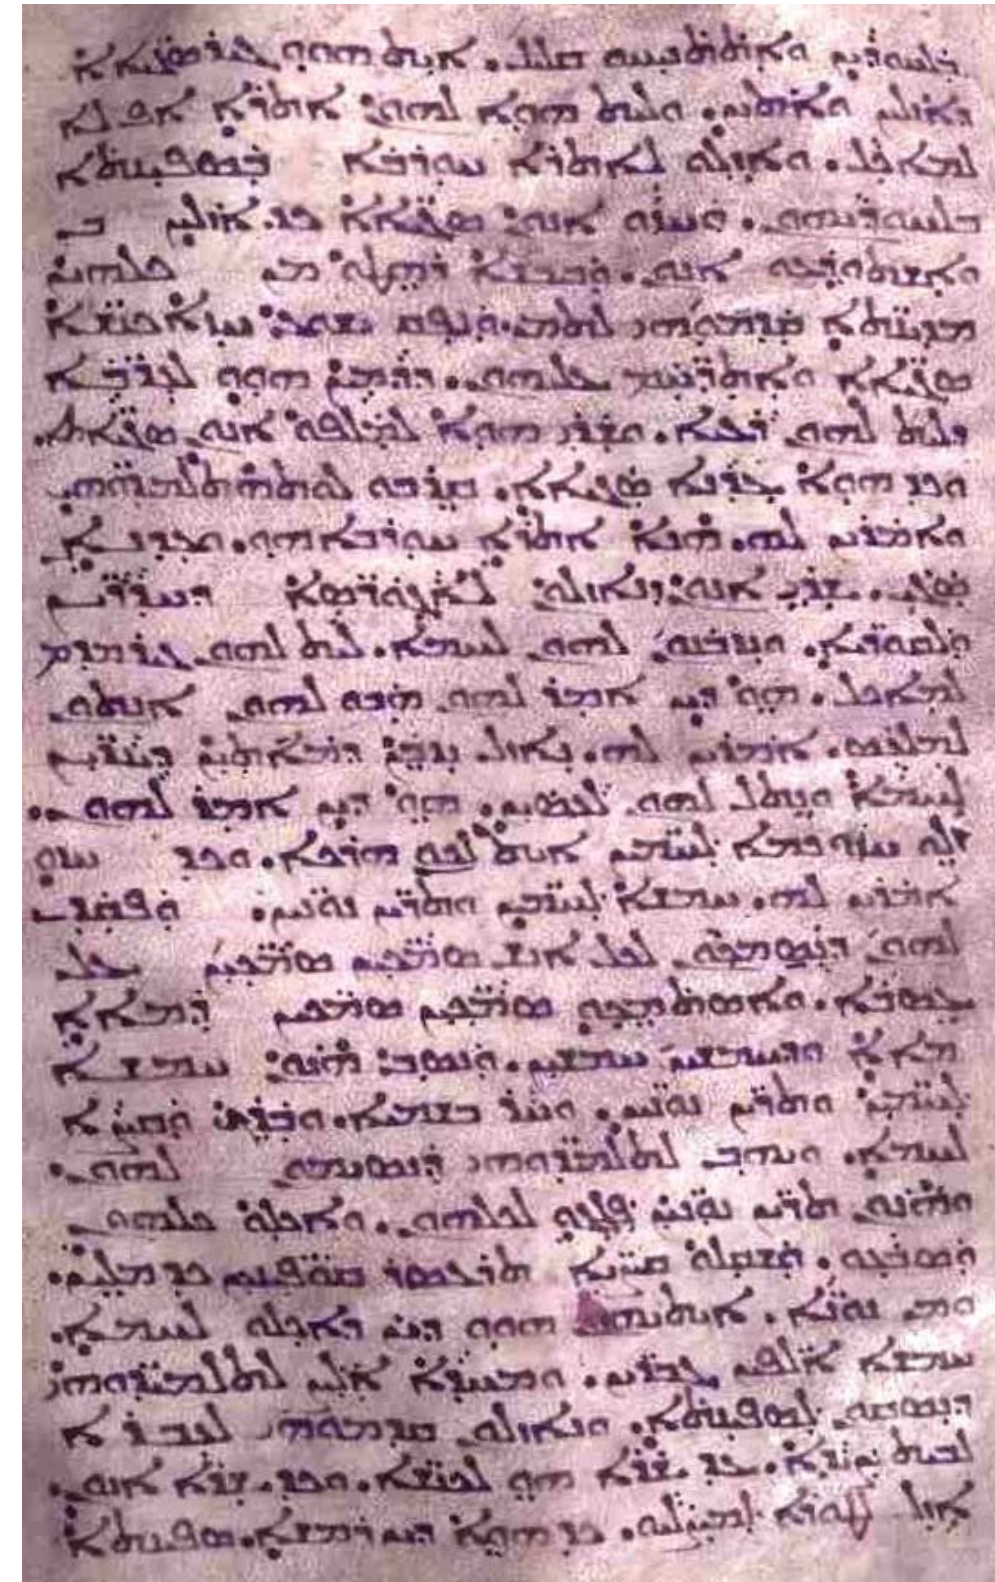 ܒܠܚܘܕܝܢ ܘܐܬܬܢܝܚܘ ܩܠܝܠ. ܐܝܬ ܗܘܘ ܓܝܪ ܣܓܝܐܐ
ܕܐܙܠܝܢ ܘܐܬܝܢ. ܘܠܝܬ ܗܘܐ ܠܗܘܢ ܐܬܪܐ ܐܦ ܠܐ
ܠܡܐܟܠ. ܘܐܙܠܘ ܠܐܬܪܐ ܚܘܪܒܐ ܒܣܦܝܢܬܐ
ܒܠܚܘܕܝܗܘܢ. ܘܚܙܘ ܐܢܘܢ ܣܓܝܐܐ ܟܕ ܐܙܠܝܢ
ܘܐܫܬܘܕܥܘ ܐܢܘܢ. ܘܒܝܒܫܐ ܪܗܛܘ ܡܢ ܟܠܗܝܢ
ܡܕܝܢܬܐ ܩܕܡܘܗܝ ܠܬܡܢ. ܘܢܦܩ ܝܫܘܥ ܚܙܐ ܟܢܫܐ
ܣܓܝܐܐ ܘܐܬܪܚܡ ܥܠܝܗܘܢ. ܕܕܡܝܢ ܗܘܘ ܠܥܪܒܐ
ܕܠܝܬ ܠܗܘܢ ܪܥܝܐ. ܘܫܪܝ ܗܘܐ ܠܡܠܦܘ ܐܢܘܢ ܣܓܝܐܬܐ.
ܘܟܕ ܗܘܐ ܥܕܢܐ ܣܓܝܐܐ. ܩܪܒܘ ܠܘܬܗ ܬܠܡܝܕܘܗܝ.
ܘܐܡܪܝܢ ܠܗ. ܗܢܐ ܐܬܪܐ ܚܘܪܒܐ ܗܘ. ܘܥܕܢܐ
ܣܓܝ. ܫܪܝ ܐܢܘܢ ܕܢܐܙܠܘܢ ܠܐܓܘܪܣܐ ܕܚܕܪܝܢ
ܘܠܩܘܪܝܐ. ܘܢܙܒܢܘܢ ܠܗܘܢ ܠܚܡܐ. ܠܝܬ ܠܗܘܢ ܓܝܪ ܡܕܡ
ܠܡܐܟܠ. ܗܘ ܕܝܢ ܐܡܪ ܠܗܘܢ ܗܒܘ ܠܗܘܢ ܐܢܬܘܢ
ܠܡܠܥܣ. ܐܡܪܝܢ ܠܗ. ܢܐܙܠ ܢܙܒܢ ܕܡܐܬܝܢ ܕܝܢܪܝܢ
ܠܚܡܐ ܘܢܬܠ ܠܗܘܢ ܠܥܣܝܢ. ܗܘ ܕܝܢ ܐܡܪ ܠܗܘܢ.
ܙܠܘ ܚܙܘ ܟܡܐ ܠܚܡܝܢ ܐܝܬ ܠܟܘܢ ܗܪܟܐ. ܘܟܕ ܚܙܘ
ܐܡܪܝܢ ܠܗ. ܚܡܫܐ ܠܚܡܝܢ ܘܬܪܝܢ ܢܘܢܝܢ. ܘܦܩܕ
ܠܗܘܢ ܕܢܣܡܟܘܢ ܠܟܠ ܐܢܫ ܣܡܟܝܢ ܣܡܟܝܢ ܥܠ
ܥܣܒܐ. ܘܐܣܬܡܟܘ ܣܡܟܝܢ ܣܡܟܝܢ ܕܡܐܐ
ܡܐܐ ܘܕܚܡܫܝܢ ܚܡܫܝܢ. ܘܢܣܒ ܗܢܘܢ ܚܡܫܐ
ܠܚܡܝܢ ܘܬܪܝܢ ܢܘܢܝܢ. ܘܚܪ ܒܫܡܝܐ. ܘܒܪܟ ܘܩܨܐ
ܠܚܡܐ. ܘܝܗܒ ܠܬܠܡܝܕܘܗܝ ܕܢܣܝܡܘܢ ܠܗܘܢ.
ܘܗܢܘܢ ܬܪܝܢ ܢܘܢܝܢ ܦܠܓܘ ܠܟܠܗܘܢ. ܘܐܟܠܘ ܟܠܗܘܢ
ܘܣܒܥܘ. ܘܫܩܠܘ ܩܨܝܐ ܬܪܥܣܪ ܩܘܦܝܢܝܢ ܟܕ ܡܠܝܢ.
ܘܡܢ ܢܘܢܐ. ܐܝܬܝܗܘܢ ܗܘܘ ܕܝܢ ܕܐܟܠܘ ܠܚܡܐ.
ܚܡܫܐ ܐܠܦܝܢ ܓܒܪܝܢ. ܘܡܚܕܐ ܐܠܨ ܠܬܠܡܝܕܘܗܝ
ܕܢܣܩܘܢ ܠܣܦܝܢܬܐ. ܘܢܐܙܠܘܢ ܩܕܡܘܗܝ ܠܥܒܪܐ
ܠܒܝܬ ܨܝܕܐ. ܟܕ ܫܪܐ ܗܘ ܠܟܢܫܐ. ܘܟܕ ܫܪܐ ܐܢܘܢ.
ܐܙܠ ܠܛܘܪܐ ܠܡܨܠܝܘ. ܟܕ ܗܘܐ ܕܝܢ ܪܡܫܐ. ܣܦܝܢܬܐ